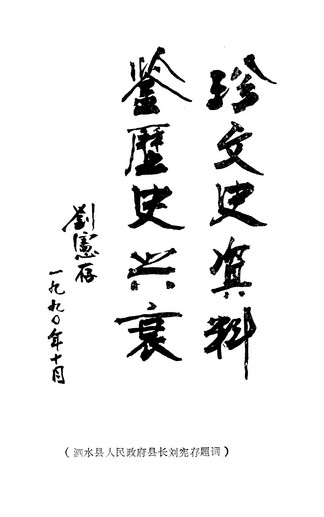 珍文史資料
鉴歷史兴衰
劉憲存
一九九〇年十月
（泗水县人民政府县长刘宪存题词）